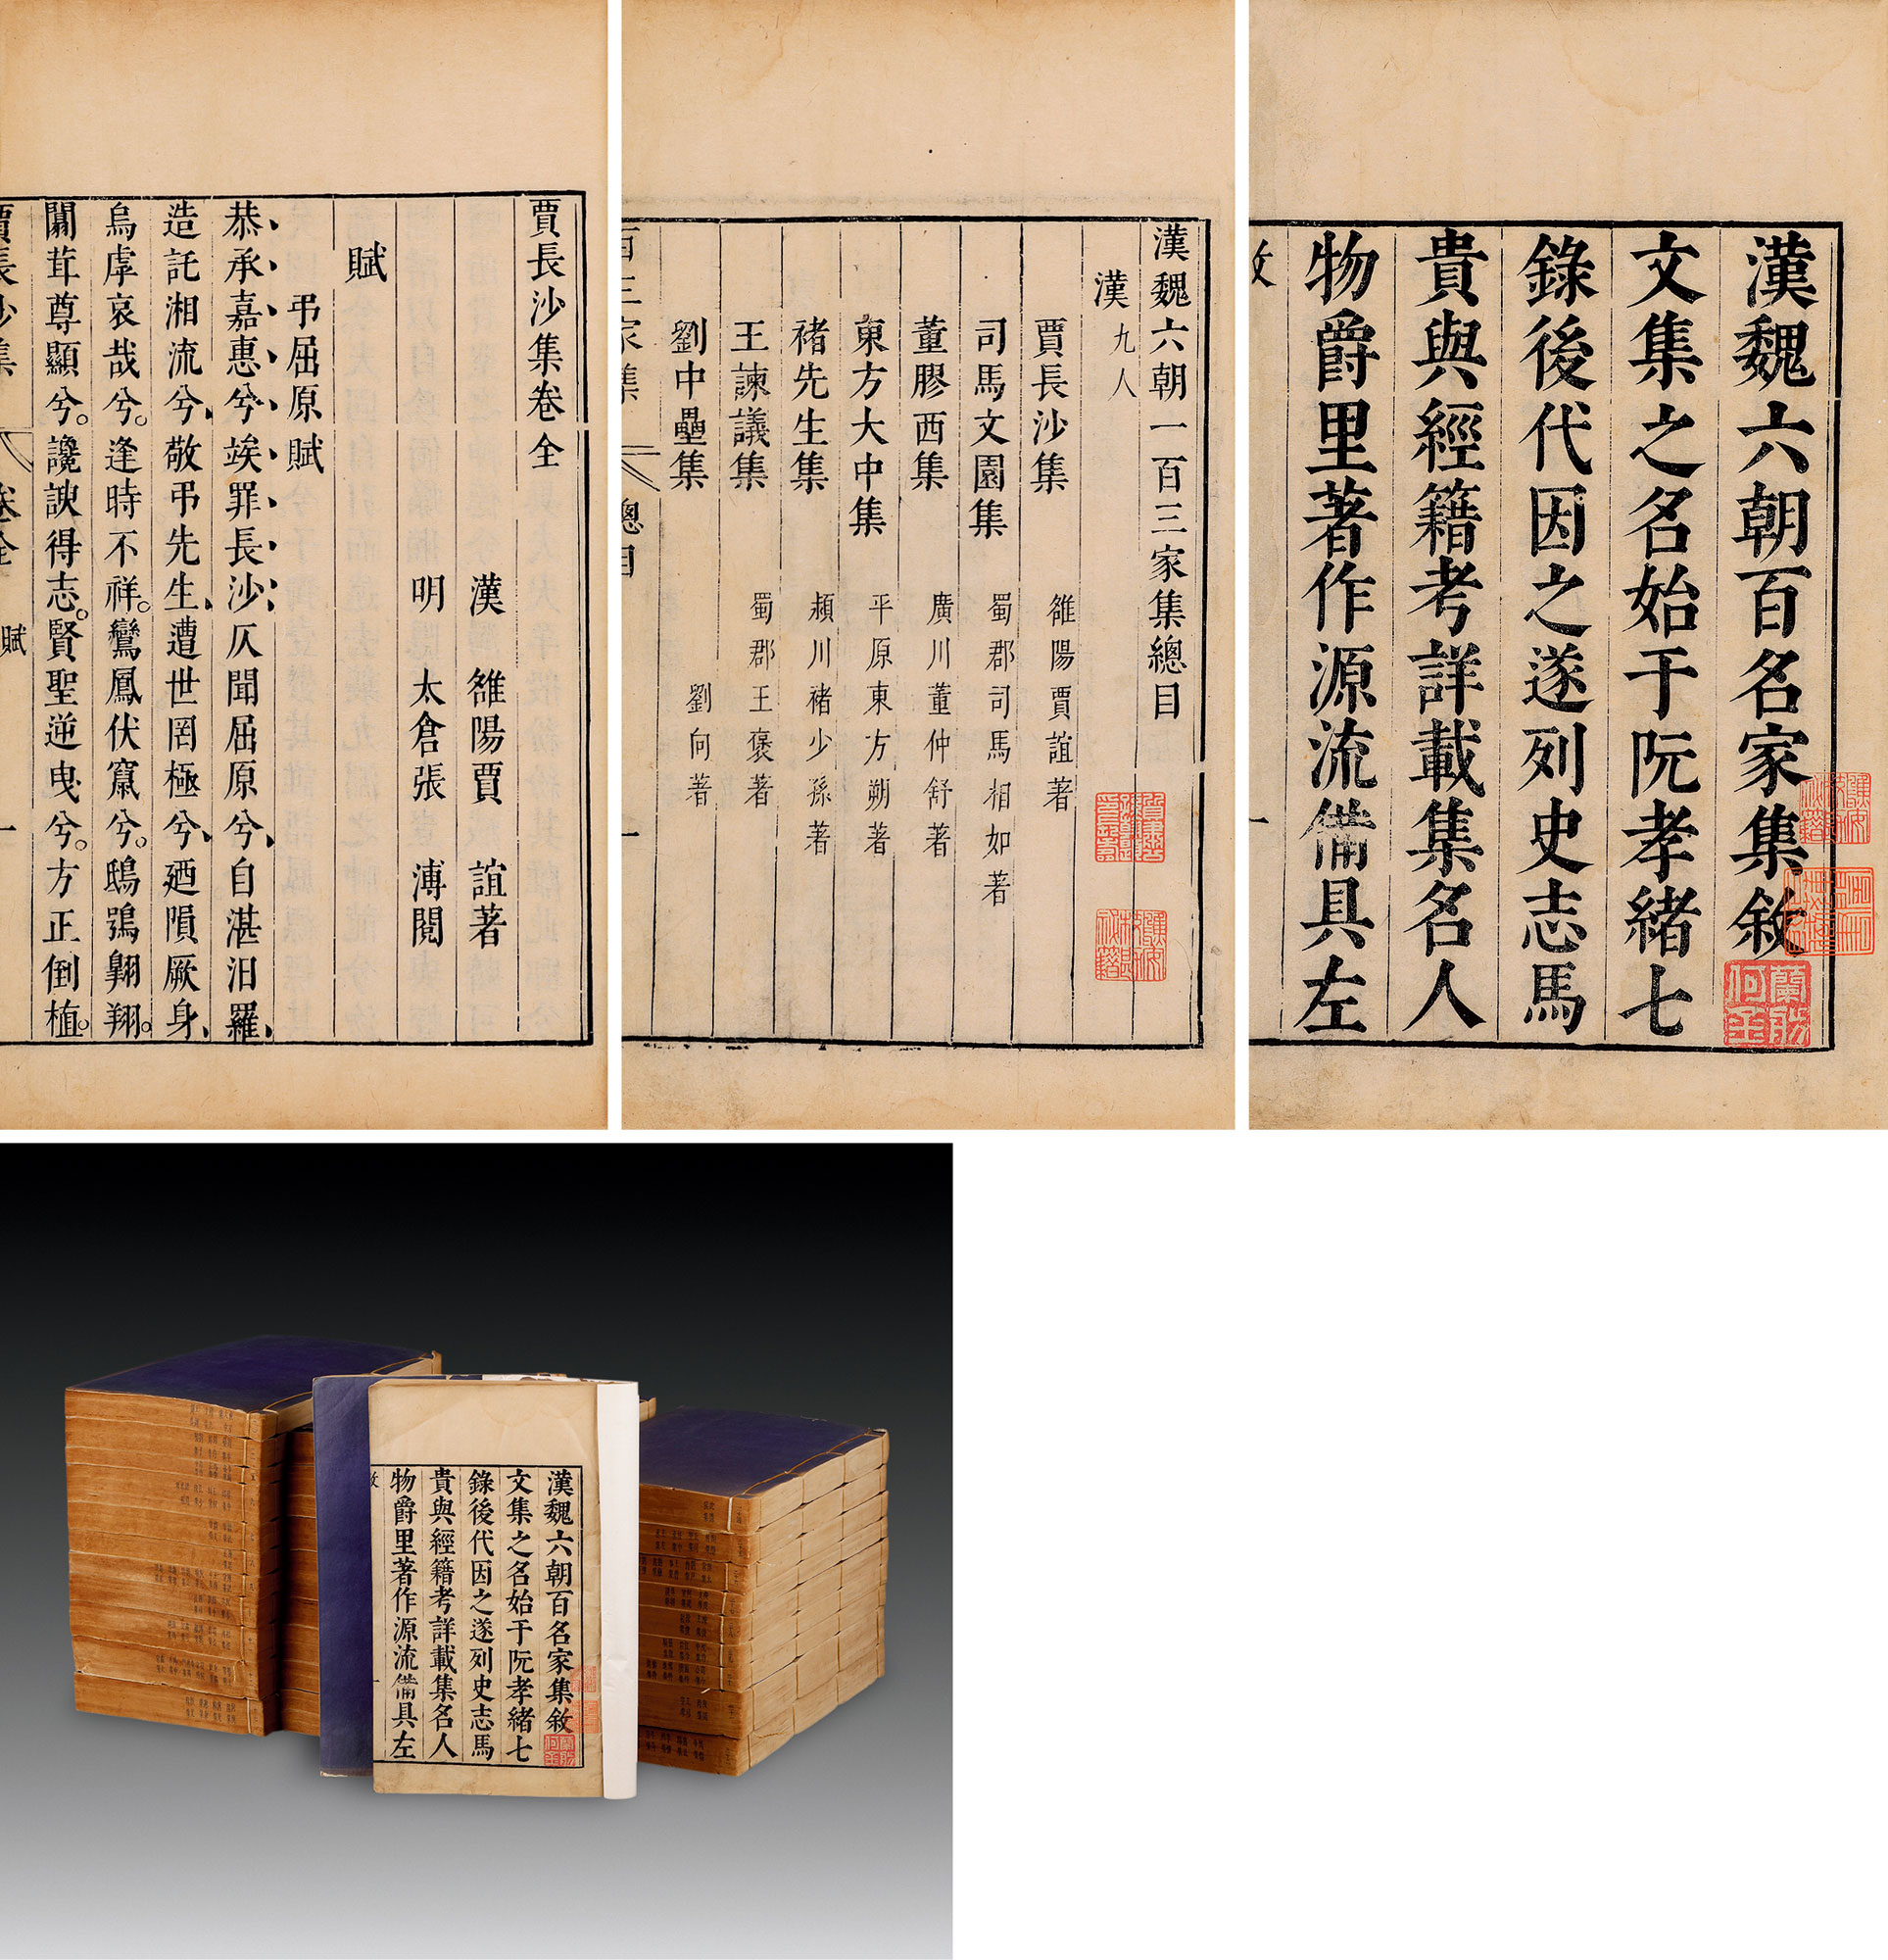 漢魏六朝百名家集敘
文集之名始于阮孝緒七
錄後代因之遂列史志馬
貴與經籍考詳載集名人
物爵里著作源流備具左
漢魏六朝一百三家集總目
漢九人
賈長沙集 雒陽賈誼著
司馬文園集 蜀郡司馬相如著
董膠西集 廣川董仲舒著
東方大中集 平原東方朔著
褚先生集 潁川褚少孫著
王諫議集 蜀郡王褒著
劉中壘集 劉向著
百三家集 總目 一
賈長沙集卷全
漢 雒陽賈 誼著
明 太倉張 溥閱
賦
弔屈原賦
恭承嘉惠兮竢罪長沙仄聞屈原兮自湛汨羅
造託湘流兮敬弔先生遭世罔極兮廼隕厥身
烏虖哀哉兮逢時不祥鸞鳳伏竄兮鴟鴞翱翔
闒茸尊顯兮讒諛得志賢聖逆曳兮方正倒植
賈長沙集 卷全 賦 一
漢魏六朝百名家集敘
文集之名始于阮孝緒七
錄後代因之遂列史志馬
貴與經籍考詳載集名人
物爵里著作源流備具左